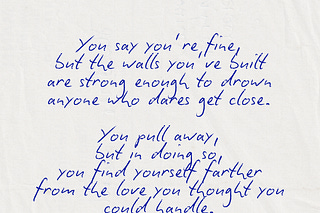 You say you're fine,
but the walls you've built
are strong enough to drown
anyone who dares get close.
You pull away,
but in doing so,
you find yourself farther
from the love you thought you
could handle.